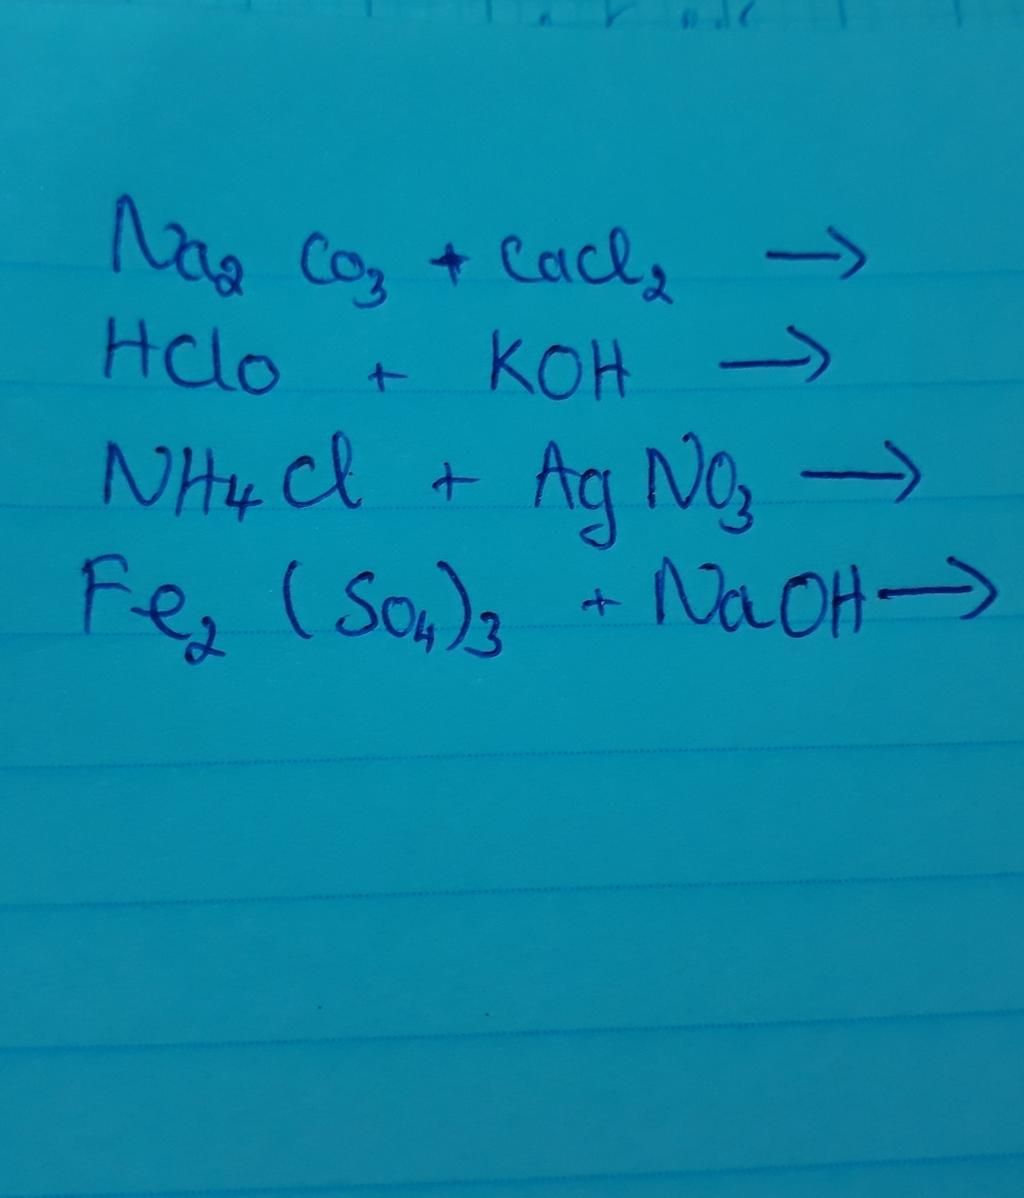 Na₂ CO₃ + CaCl₂ →
HClO + KOH →
NH₄Cl + AgNO₃ →
Fe₂(SO₄)₃ + NaOH →